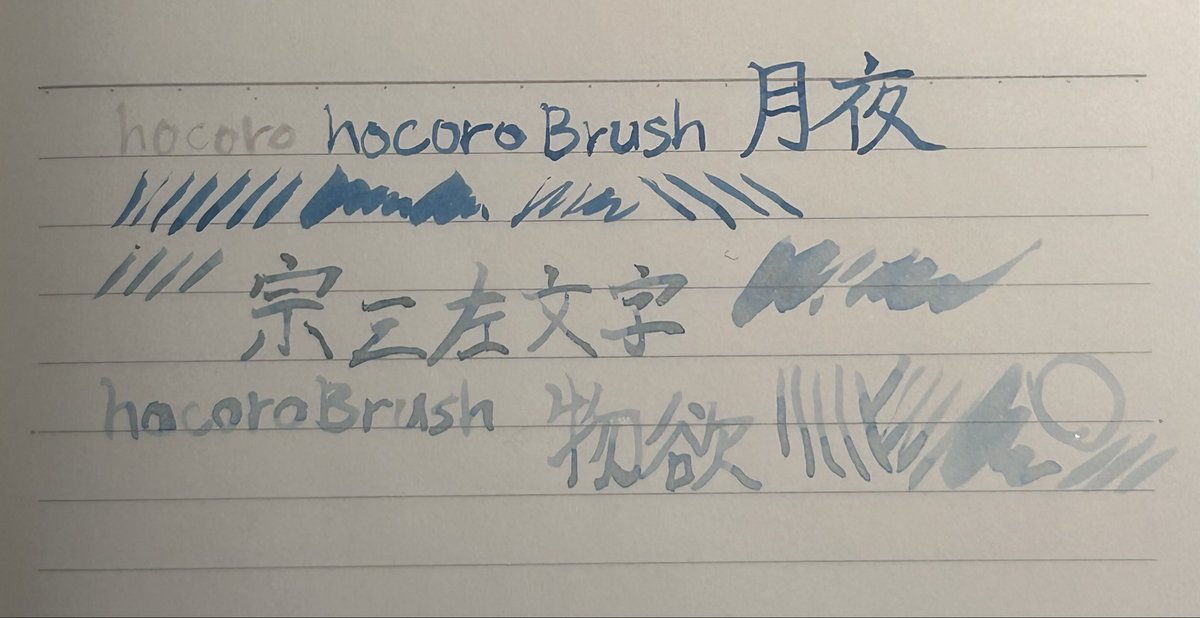 hocoro hocoro Brush 月夜
宗三左文字
hocoro Brush 物欲